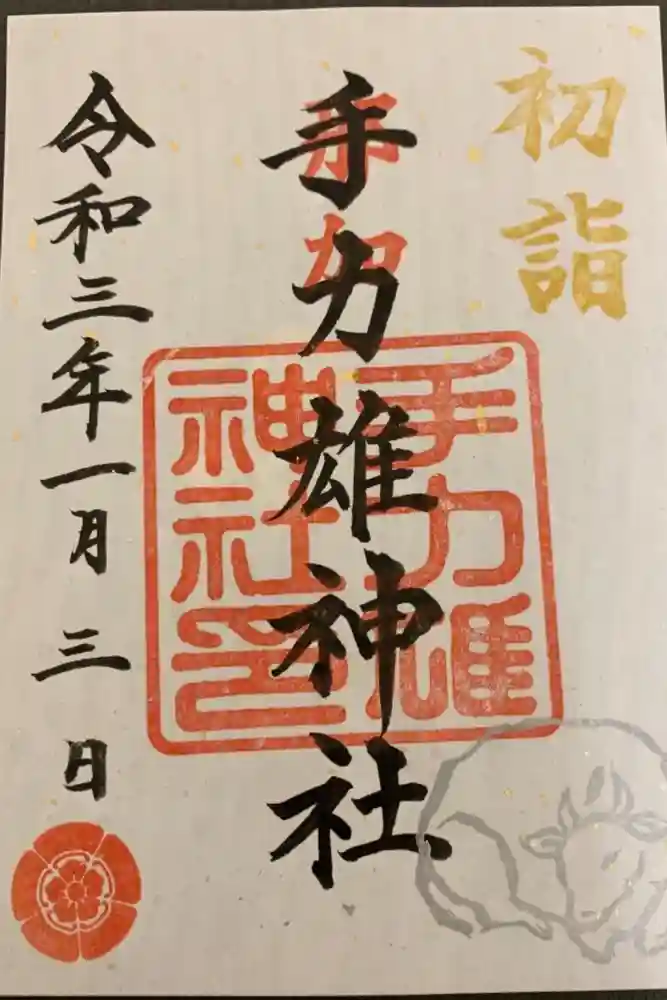 初詣
那加
手力雄神社
手力雄
神社印
令和三年一月三日